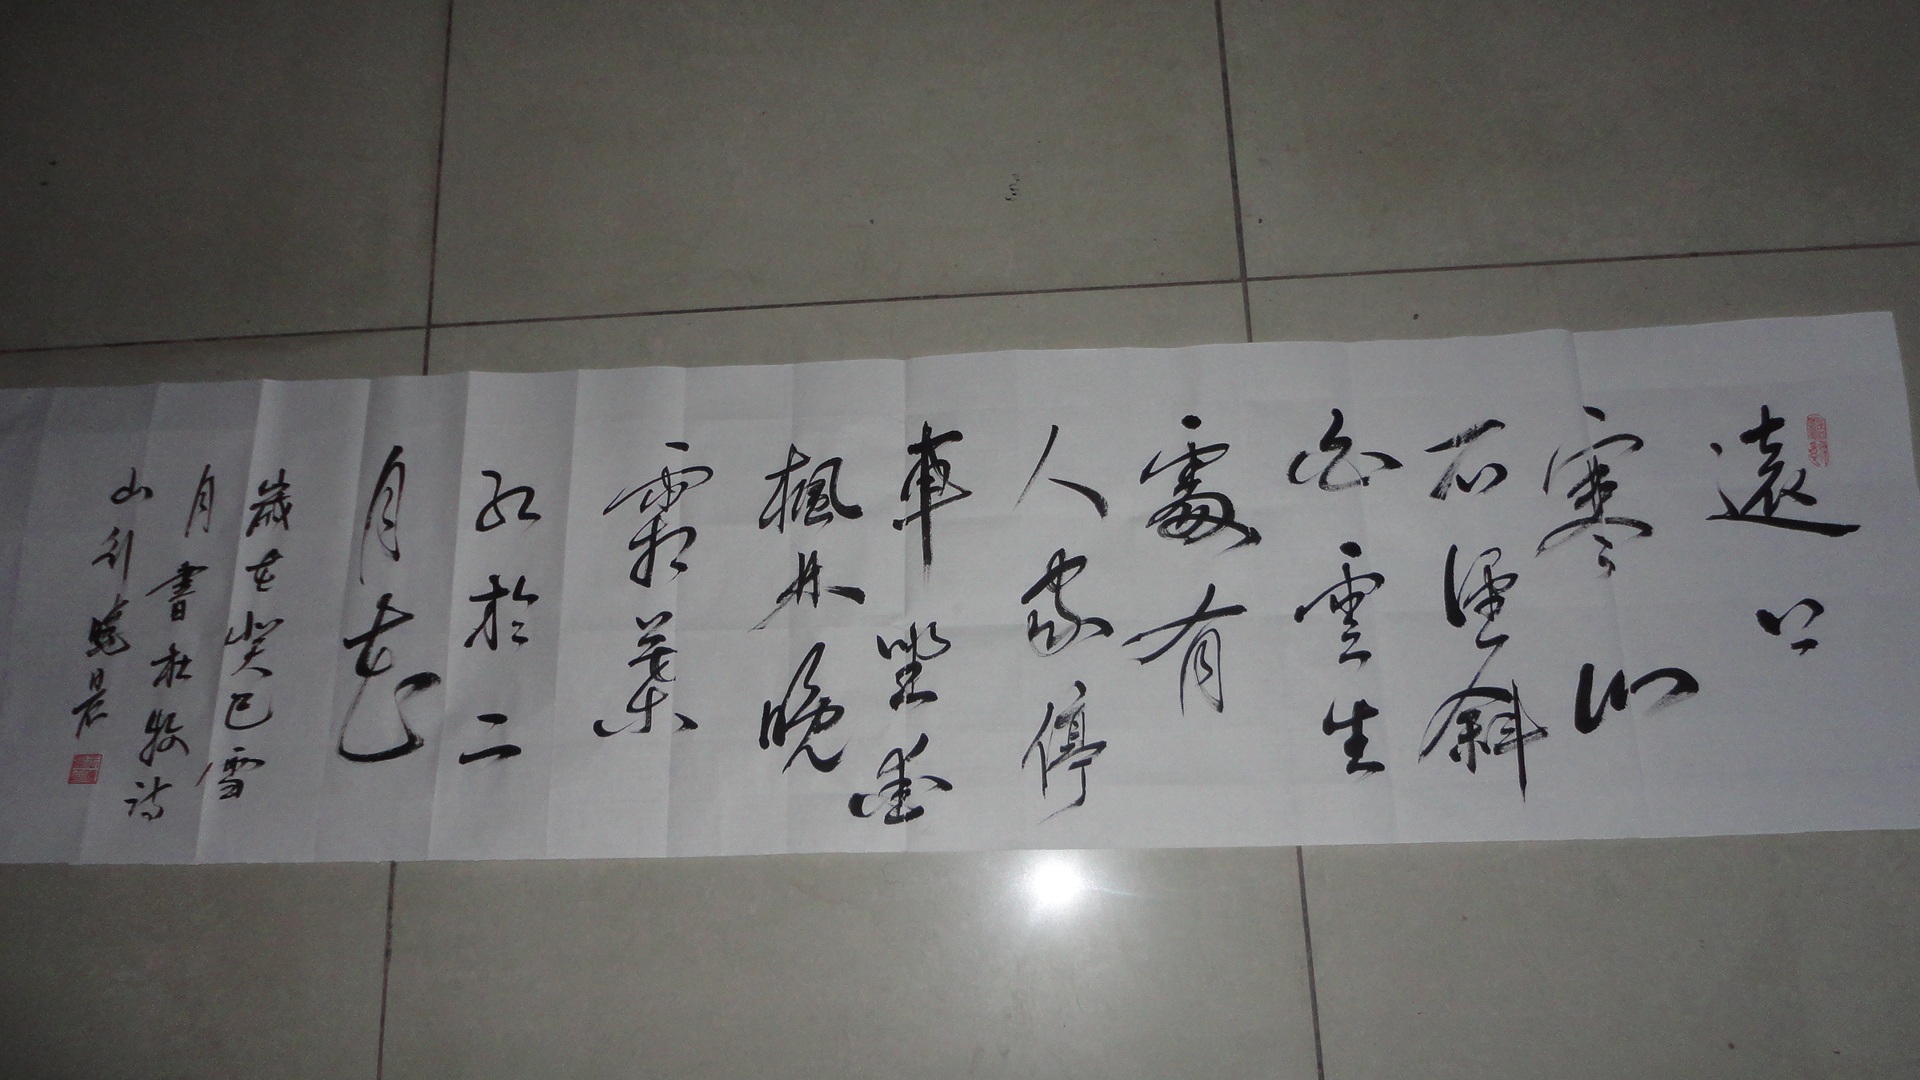 遠上
寒山
石徑斜
白雲生
處有
人家停
車坐愛
楓林晚
霜葉
紅於二
月花
歲在癸巳雪
月書杜牧詩
山